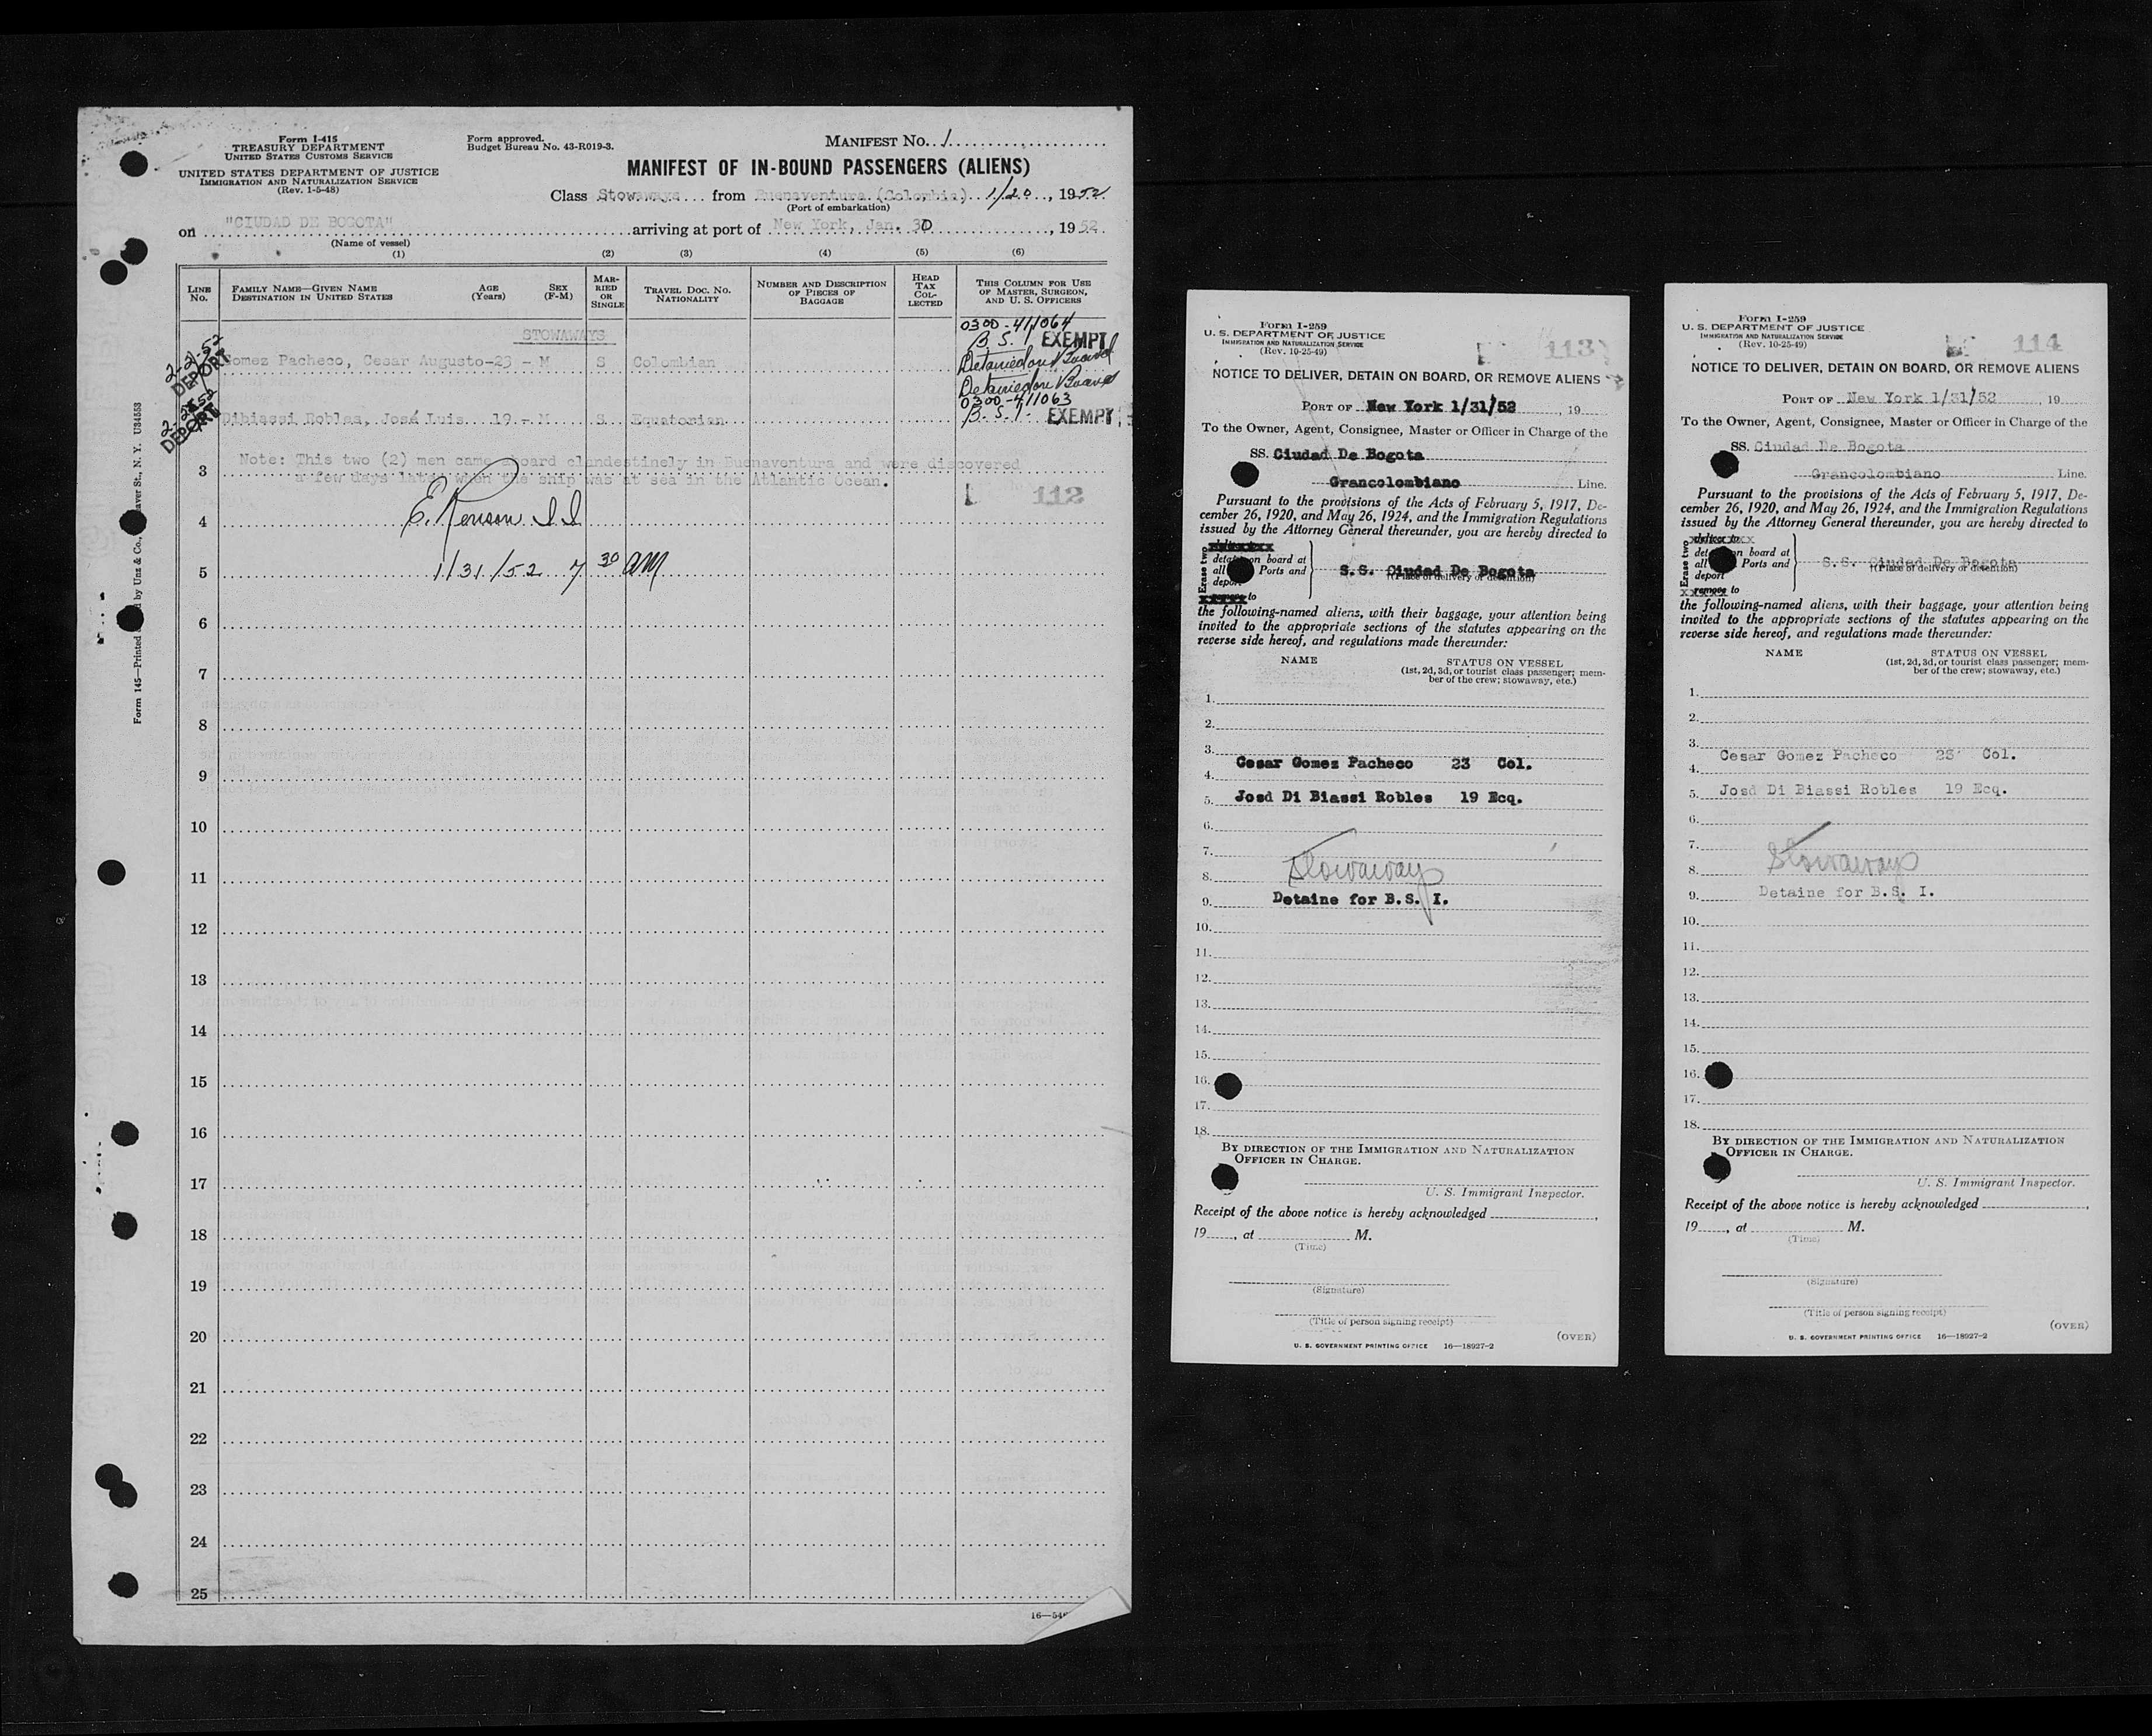 Form I-415
TREASURY DEPARTMENT
UNITED STATES CUSTOMS SERVICE
UNITED STATES DEPARTMENT OF JUSTICE
IMMIGRATION AND NATURALIZATION SERVICE
(Rev. 1-5-48)
Form approved.
Budget Bureau No. 43-R019-3.
MANIFEST NO. 1
MANIFEST OF IN-BOUND PASSENGERS (ALIENS)
Class Stowaways from Buenaventura (Colombia) 1/20, 1952
(Port of embarkation)
on "CIUDAD DE BOGOTA" arriving at port of New York, Jan. 30, 1952
(Name of vessel)
(1) (2) (3) (4) (5) (6)
LINE No.
FAMILY NAME—GIVEN NAME
DESTINATION IN UNITED STATES
AGE (Years)
SEX (F-M)
MARRIED OR SINGLE
TRAVEL DOC. NO. NATIONALITY
NUMBER AND DESCRIPTION OF PIECES OF BAGGAGE
HEAD TAX COLLECTED
THIS COLUMN FOR USE OF MASTER, SURGEON, AND U. S. OFFICERS
STOWAWAYS
2-21-52 DEPORT
Gomez Pacheco, Cesar Augusto-23 - M S Colombian
0300-411064
B. S. I. EXEMPT
Detained on Board
Detained on Board
0300-411063
B. S. I. EXEMPT
DEPORT
Dibiassi Robles, José Luis. 19 - M S Equatorian
3
Note: This two (2) men came board clandestinely in Buenaventura and were discovered
a few days later when the ship was at sea in the Atlantic Ocean.
112
4
E. Renson I I
5
1/31/52 7 30 AM
6
7
8
9
10
11
12
13
14
15
16
17
18
19
20
21
22
23
24
25
Form 145—Printed by Unz & Co., Beaver St., N. Y. U34553
Form I-259
U. S. DEPARTMENT OF JUSTICE
IMMIGRATION AND NATURALIZATION SERVICE
(Rev. 10-25-49)
113
NOTICE TO DELIVER, DETAIN ON BOARD, OR REMOVE ALIENS
PORT OF New York 1/31/52, 19
To the Owner, Agent, Consignee, Master or Officer in Charge of the
SS. Ciudad De Bogota
Grancolombiano Line.
Pursuant to the provisions of the Acts of February 5, 1917, De-
cember 26, 1920, and May 26, 1924, and the Immigration Regulations
issued by the Attorney General thereunder, you are hereby directed to
Erase two
detain on board at
all Ports and
deport
remove to
S.S. Ciudad De Bogota
(Place of delivery or detention)
the following-named aliens, with their baggage, your attention being
invited to the appropriate sections of the statutes appearing on the
reverse side hereof, and regulations made thereunder:
NAME STATUS ON VESSEL
(1st, 2d, 3d, or tourist class passenger; mem-
ber of the crew; stowaway, etc.)
1.
2.
3.
Cesar Gomez Pacheco 23 Col.
4.
5. Josd Di Biassi Robles 19 Ecq.
6.
7.
Stowaways
8.
9. Detaine for B.S. I.
10.
11.
12.
13.
14.
15.
16.
17.
18.
BY DIRECTION OF THE IMMIGRATION AND NATURALIZATION
OFFICER IN CHARGE.
U. S. Immigrant Inspector.
Receipt of the above notice is hereby acknowledged
19, at M.
(Time)
(Signature)
(Title of person signing receipt)
(OVER)
U. S. GOVERNMENT PRINTING OFFICE 16—18927-2
Form I-259
U. S. DEPARTMENT OF JUSTICE
IMMIGRATION AND NATURALIZATION SERVICE
(Rev. 10-25-49)
114
NOTICE TO DELIVER, DETAIN ON BOARD, OR REMOVE ALIENS
PORT OF New York 1/31/52, 19
To the Owner, Agent, Consignee, Master or Officer in Charge of the
SS. Ciudad De Bogota
Grancolombiano Line.
Pursuant to the provisions of the Acts of February 5, 1917, De-
cember 26, 1920, and May 26, 1924, and the Immigration Regulations
issued by the Attorney General thereunder, you are hereby directed to
Erase two
deliver to
detain on board at
all Ports and
deport
remove to
S.S. Ciudad De Bogota
(Place of delivery or detention)
the following-named aliens, with their baggage, your attention being
invited to the appropriate sections of the statutes appearing on the
reverse side hereof, and regulations made thereunder:
NAME STATUS ON VESSEL
(1st, 2d, 3d, or tourist class passenger; mem-
ber of the crew; stowaway, etc.)
1.
2.
3.
Cesar Gomez Pacheco 23 Col.
4.
5. Josd Di Biassi Robles 19 Ecq.
6.
7.
Stowaways
8.
9. Detaine for B.S. I.
10.
11.
12.
13.
14.
15.
16.
17.
18.
BY DIRECTION OF THE IMMIGRATION AND NATURALIZATION
OFFICER IN CHARGE.
U. S. Immigrant Inspector.
Receipt of the above notice is hereby acknowledged
19, at M.
(Time)
(Signature)
(Title of person signing receipt)
(OVER)
U. S. GOVERNMENT PRINTING OFFICE 16—18927-2